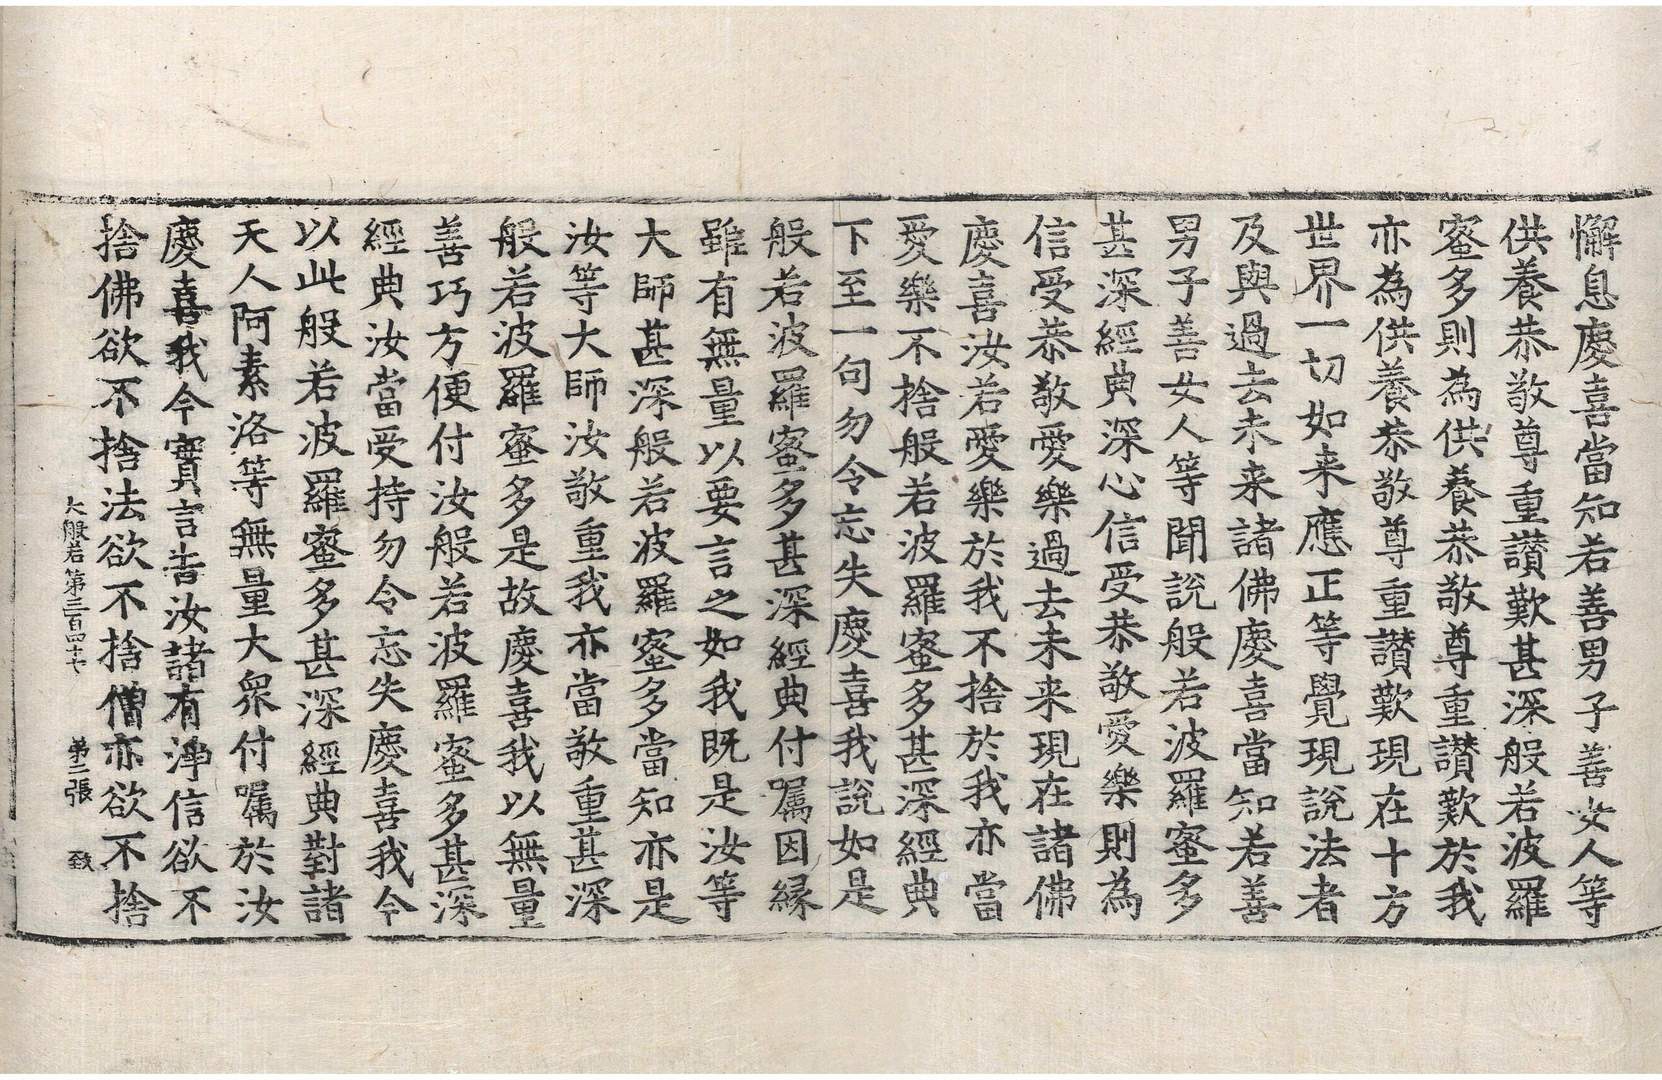 懈息慶喜當知若善男子善女人等
供養恭敬尊重讃歎甚深般若波羅
蜜多則為供養恭敬尊重讃歎於我
亦為供養恭敬尊重讃歎現在十方
世界一切如来應正等覺現說法者
及與過去未来諸佛慶喜當知若善
男子善女人等聞說般若波羅蜜多
甚深經典深心信受恭敬愛樂則為
信受恭敬愛樂過去未来現在諸佛
慶喜汝若愛樂於我不捨於我亦當
愛樂不捨般若波羅蜜多甚深經典
下至一句勿令忘失慶喜我說如是
般若波羅蜜多甚深經典付囑因緣
雖有無量以要言之如我既是汝等
大師甚深般若波羅蜜多當知亦是
汝等大師汝敬重我亦當敬重甚深
般若波羅蜜多是故慶喜我以無量
善巧方便付汝般若波羅蜜多甚深
經典汝當受持勿令忘失慶喜我今
以此般若波羅蜜多甚深經典對諸
天人阿素洛等無量大衆付囑於汝
慶喜我今實言告汝諸有淨信欲不
捨佛欲不捨法欲不捨僧亦欲不捨
大般若第三百四十七 第三張 致